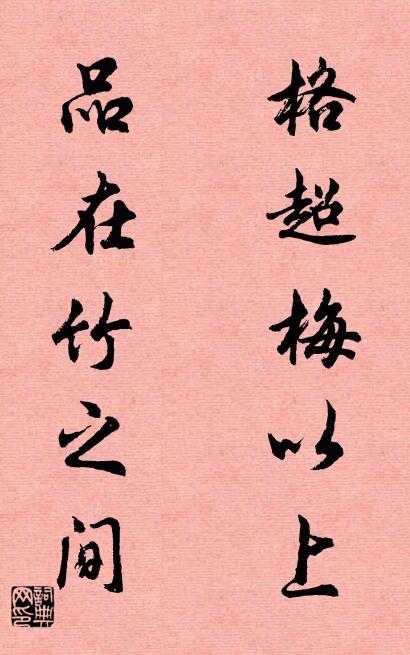 格超梅以上
品在竹之间
词典网印